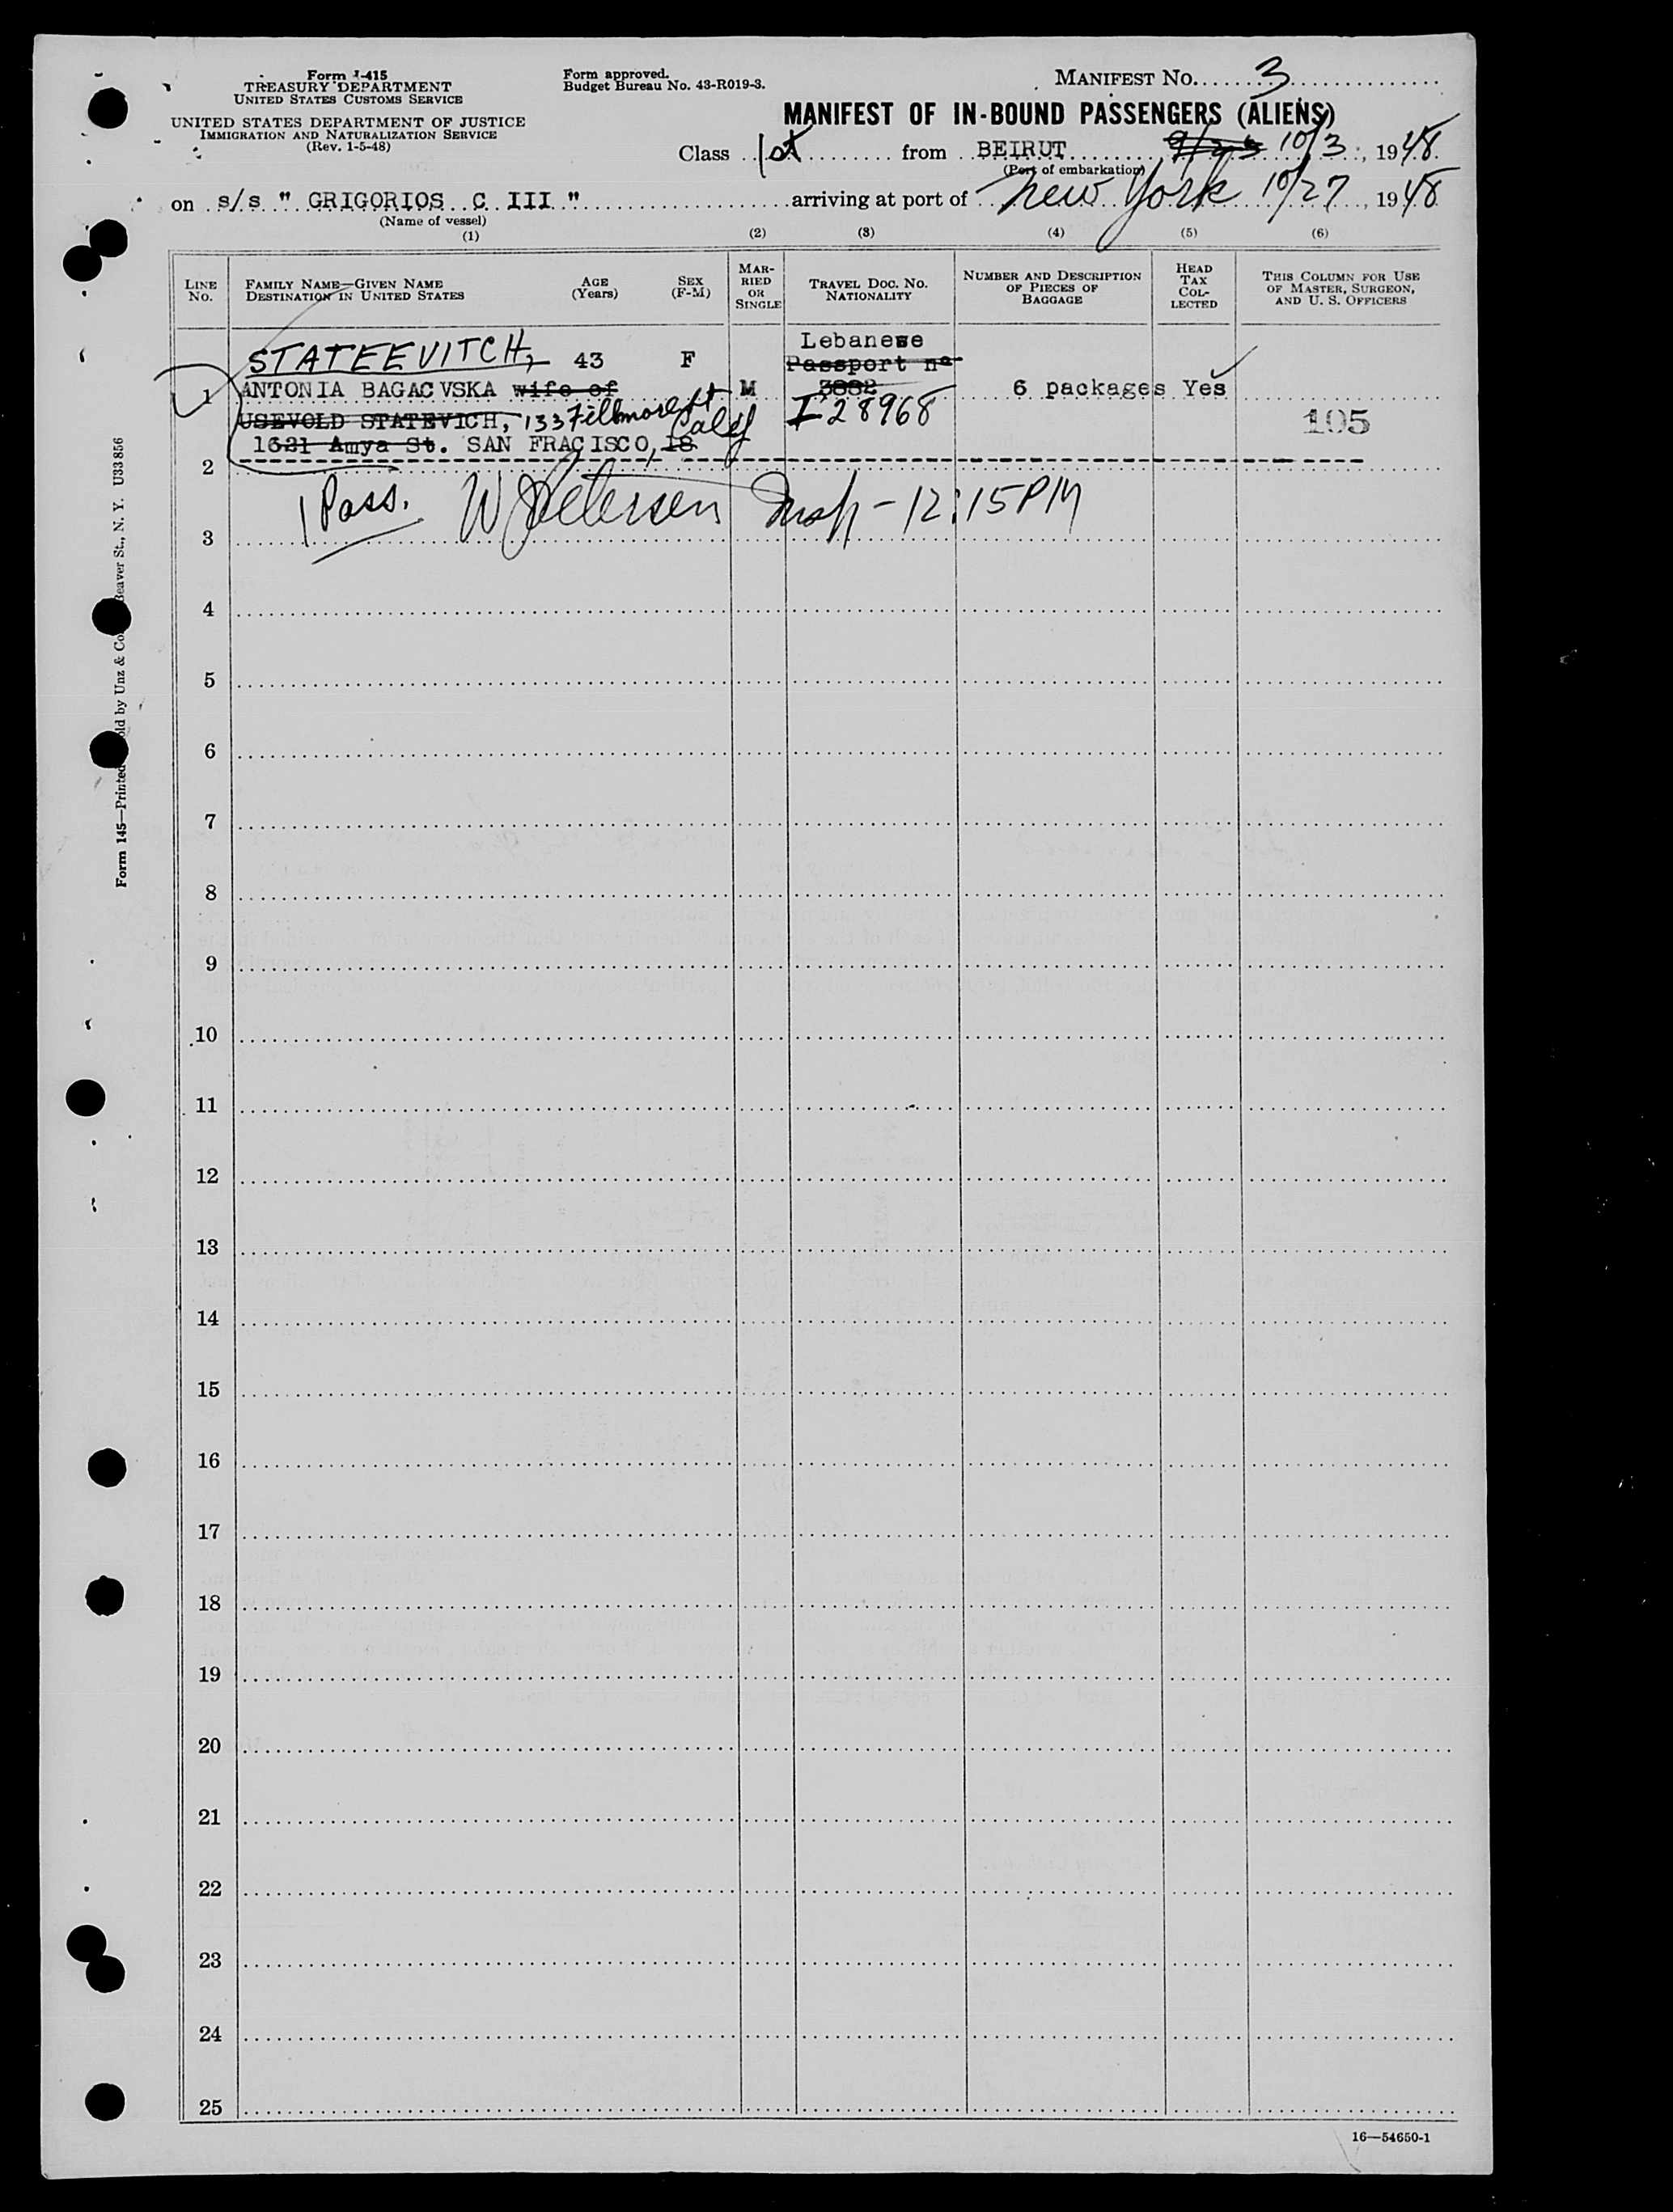 Form I-415
TREASURY DEPARTMENT
UNITED STATES CUSTOMS SERVICE
UNITED STATES DEPARTMENT OF JUSTICE
IMMIGRATION AND NATURALIZATION SERVICE
(Rev. 1-5-48)
Form approved.
Budget Bureau No. 43-R019-3.
MANIFEST NO. 3
MANIFEST OF IN-BOUND PASSENGERS (ALIENS)
Class 1st from BEIRUT 10/3, 1948
(Port of embarkation)
on s/s " GRIGORIOS C III " arriving at port of New York 10/27, 1948
(Name of vessel)
(1) (2) (3) (4) (5) (6)
LINE NO.
FAMILY NAME—GIVEN NAME
DESTINATION IN UNITED STATES
AGE (Years)
SEX (F-M)
MARRIED OR SINGLE
TRAVEL DOC. NO.
NATIONALITY
NUMBER AND DESCRIPTION OF PIECES OF BAGGAGE
HEAD TAX COLLECTED
THIS COLUMN FOR USE OF MASTER, SURGEON, AND U. S. OFFICERS
STATEEVITCH, 43 F Lebanese
Passport nº
1 ANTONIA BAGACVSKA wife of M 3882 6 packages Yes
USEVOLD STATEVICH, 133 Fillmore St I 28968 105
1621 Amya St. SAN FRACISCO, 18 Calif
2
1 Pass. W Petersen Insp - 12:15 PM
3
4
5
6
7
8
9
10
11
12
13
14
15
16
17
18
19
20
21
22
23
24
25
16—54650-1
Form 145—Printed old by Unz & Co Beaver St., N. Y. U33856